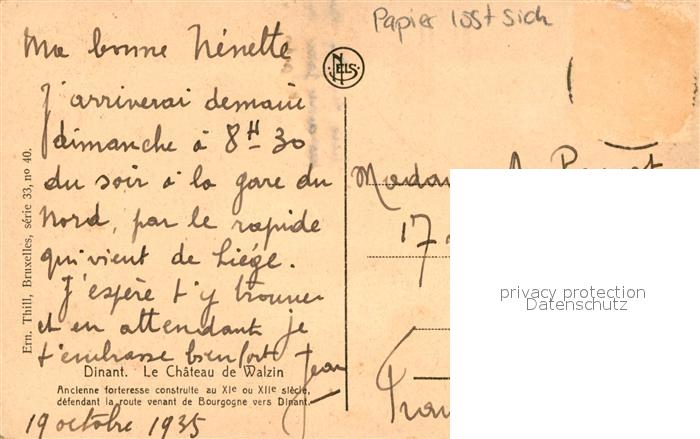 Papier löst sich
Ma bonne Nénette
NELS
J'arriverai demain
dimanche à 8H-30
du soir à la gare du
Nord, par le rapide
qui vient de Liége.
J'espère t'y trouver
et en attendant je
t'embrasse bien fort
Jean
Dinant. Le Château de Walzin
Ancienne forteresse construite au XIe ou XIIe siècle,
défendant la route venant de Bourgogne vers Dinant.
19 octobre 1935
Ern. Thill, Bruxelles, série 33, no 40.
17
privacy protection
Datenschutz